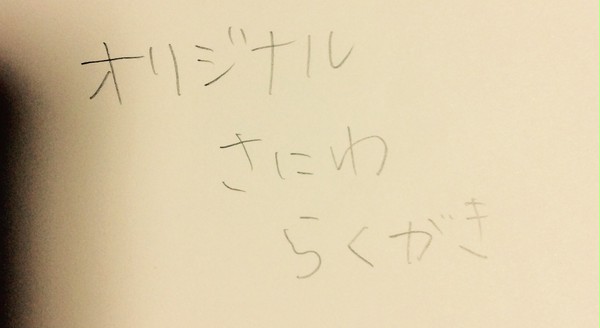 オリジナル
さにわ
らくがき